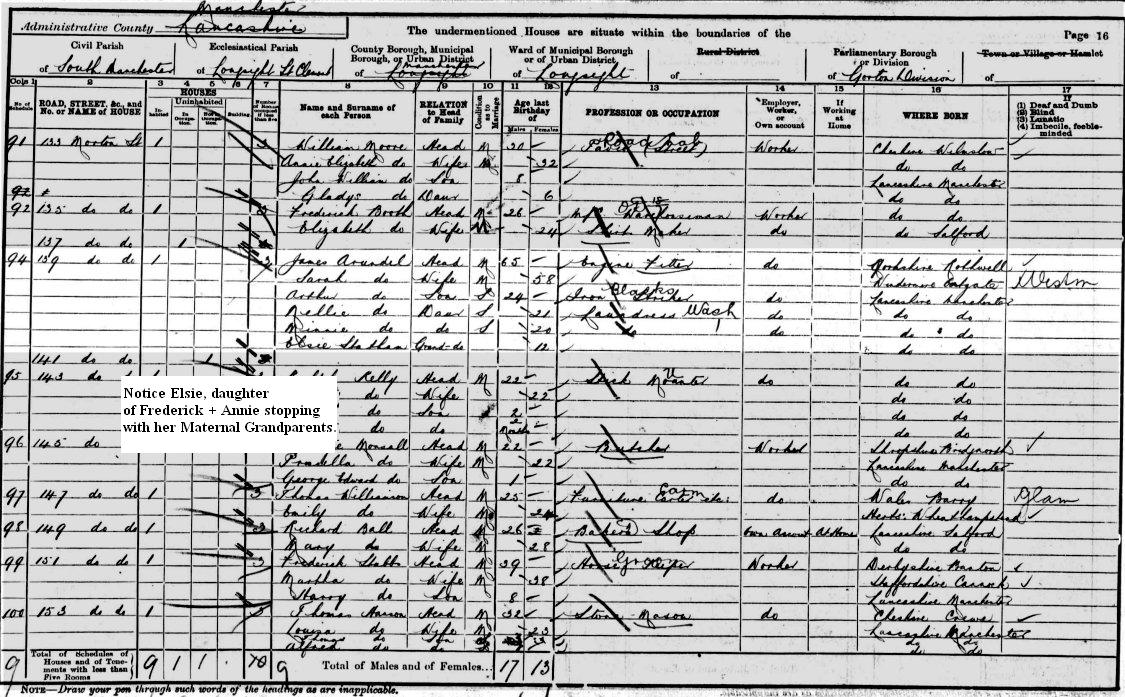 Manchester
Administrative County Lancashire
The undermentioned Houses are situate within the boundaries of the
Page 16
Civil Parish
of South Manchester
Ecclesiastical Parish
of Longsight St Clement
County Borough, Municipal
Borough, or Urban District
of Manchester
Ward of Municipal Borough
or of Urban District
of Longsight
Rural District
of
Parliamentary Borough
or Division
of Gorton Division
Town or Village or Hamlet
of
Cols 1 2 3 4 5 6 7 8 9 10 11 12 13 14 15 16 17
No. of Schedule
ROAD, STREET, &c., and No. or NAME of HOUSE
HOUSES
In-habited
Uninhabited
In Occupa-tion.
Not in Occupation
Building.
Name and Surname of each Person
RELATION to Head of Family
Condition as to Marriage
Age last Birthday of
Males Females
PROFESSION OR OCCUPATION
Employer, Worker, or Own account
If Working at Home
WHERE BORN
(1) Deaf and Dumb
(2) Blind
(3) Lunatic
(4) Imbecile, feeble-minded
91 133 Morton St 1 William Moore Head M 30 (Street) Worker Cheshire Wilmslow
Annie Elizabeth do Wife M 32 do do
John William do Son 8 Lancashire Manchester
Gladys do Daur 6 do do
92 135 do do 1 3 Frederick Booth Head M 26 Warehouseman Worker do do
Elizabeth do Wife M 24 Shirt Maker do do Salford
137 do do 1
94 139 do do 1 James Arundel Head M 65 Engine Fitter do Yorkshire Rothwell
Sarah do Wife M 58 Westm
Arthur do Son S 24 Iron Striker Blacks do Lancashire Manchester
Nellie do Daur S 21 Laundress Wash do do do
Minnie do do S 20 do do do do
Elsie Statham Grand-do 12 do do
141 do do 1
95 143 do Kelly Head M 22 do do do
do Wife 22 do do
do Son 2 do do
do do Months do do
Notice Elsie, daughter
of Frederick + Annie stopping
with her Maternal Grandparents.
96 145 do Head M 22 Butcher Worker Shropshire Bridgnorth
Prudella do Wife M 22 Lancashire Manchester
George Edward do Son 1 do do
97 147 do do 1 3 Thomas Williamson Head M 25 Furniture Carter do Wales Barry Glam
Emily do Wife M 24 Herts: Wheathampstead
98 149 do do 1 Richard Ball Head M 26 Bakers Shop Own account At Home Lancashire Salford
Mary do Wife M 28 do do
99 151 do do 1 3 Frederick Stubbs Head M 39 Worker Derbyshire Buxton
Martha do Wife M 38 Staffordshire Cannock
Harry do Son 8 Lancashire Manchester
100 153 do do 1 3 Thomas Head M 32 Stone Mason do Cheshire Crewe
Louisa do Wife M 23 Lancashire Manchester
do Son do do
Alfred do do do do
9 Total of Schedules of Houses and of Tenements with less than Five Rooms 9 1 1 Total of Males and of Females... 17 13
NOTE—Draw your pen through such words of the headings as are inapplicable.